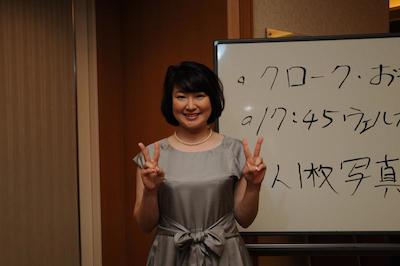 。クローク・お
。17:45 ウェル
人1枚写真